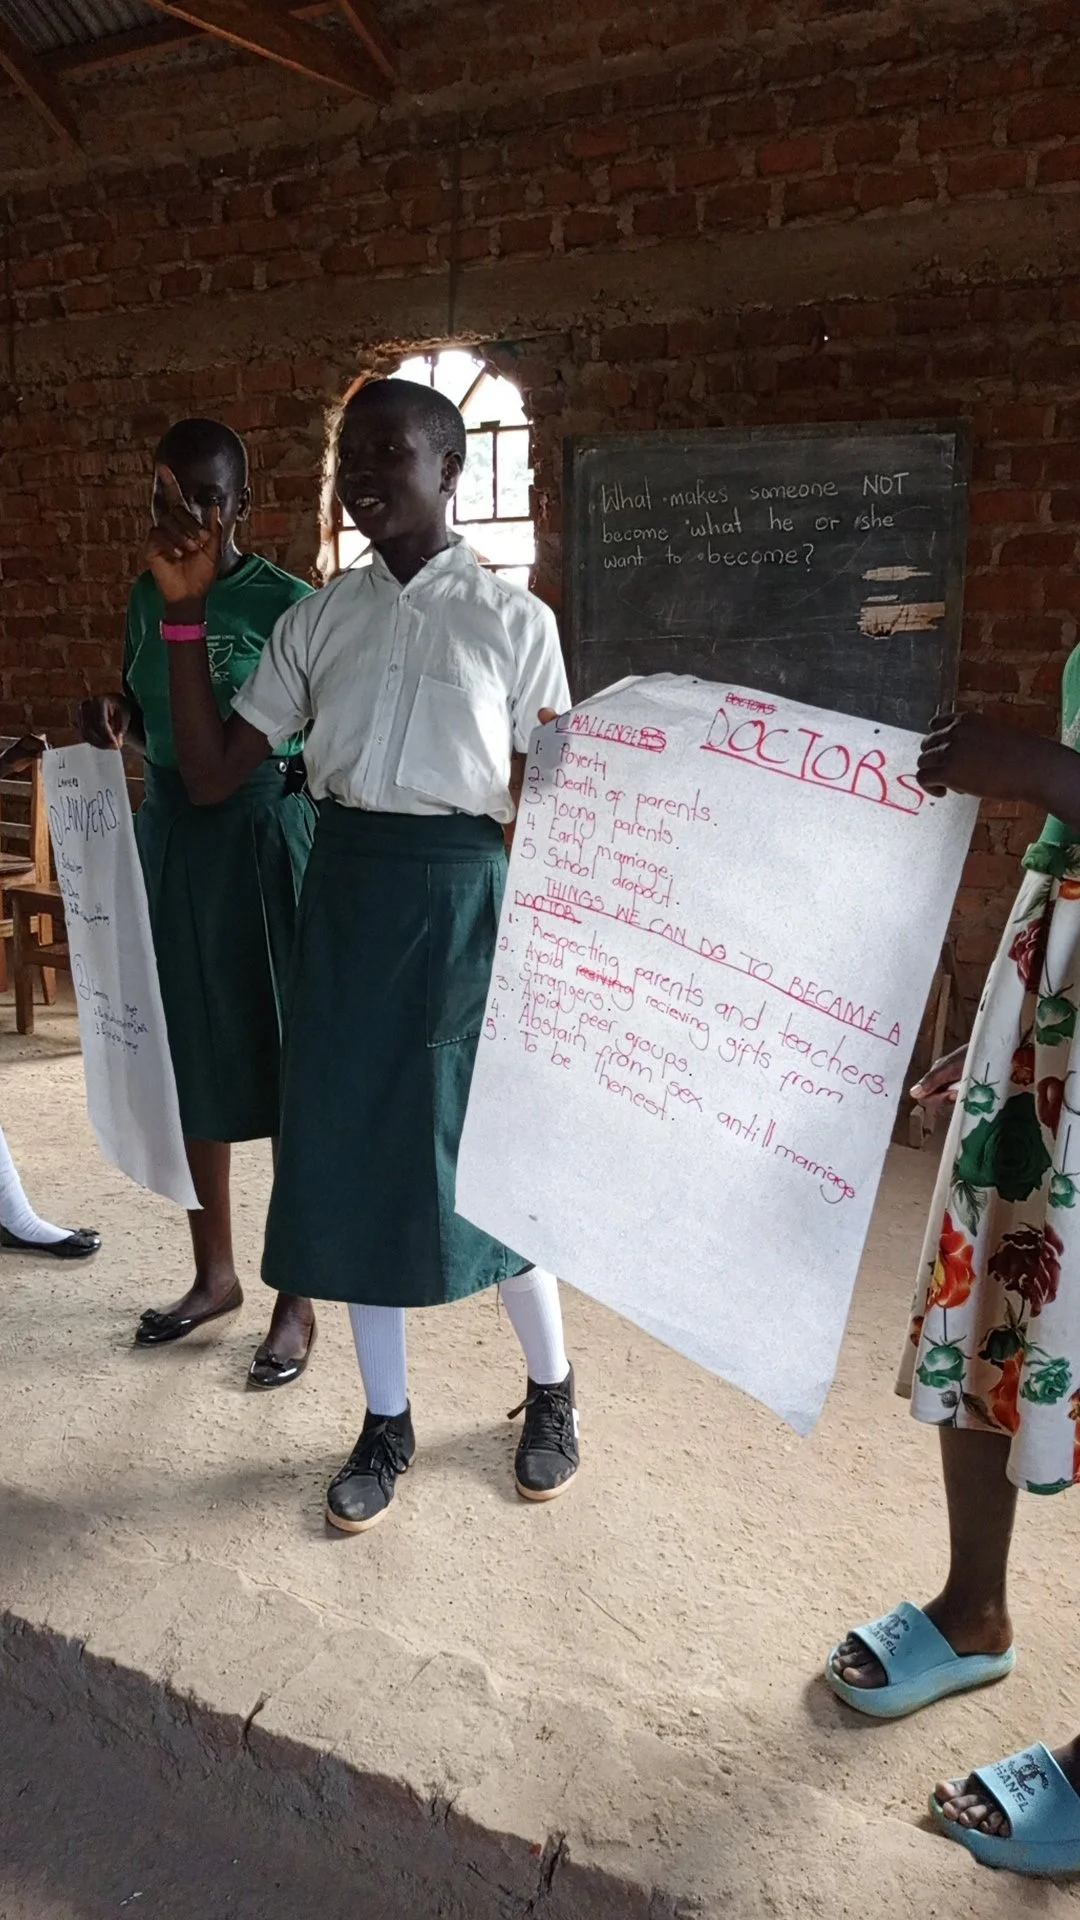 What makes someone NOT
become what he or she
want to become?
DOCTORS
DOCTORS
CHALLENGES
1. Poverty
2. Death of parents.
3. Young parents.
4 Early marriage.
5 School dropout.
THINGS WE CAN DO TO BECAME A
DOCTOR
1. Respecting parents and teachers.
2. Avoid recieving gifts from
Strangers.
3. Avoid peer groups.
4. Abstain from sex antill marriage
5. To be honest.
LAWYERS
LAWYERS
CHANEL
CHANEL